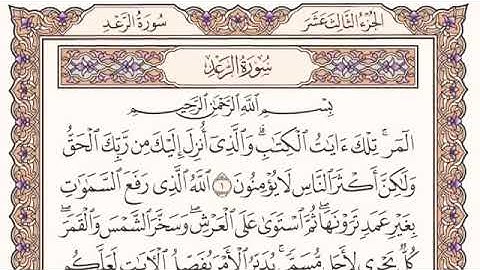 سُورَةُ الرَّعْدِ
الجُزءُ الثَّالِثَ عَشَرَ
سُورَةُ الرَّعْدِ
بِسْمِ اللَّهِ الرَّحْمَٰنِ الرَّحِيمِ
الٓمٓر ۚ تِلْكَ ءَايَٰتُ الْكِتَٰبِ ۗ وَالَّذِىٓ أُنزِلَ إِلَيْكَ مِن رَّبِّكَ الْحَقُّ
وَلَٰكِنَّ أَكْثَرَ النَّاسِ لَا يُؤْمِنُونَ ١ اللَّهُ الَّذِى رَفَعَ السَّمَٰوَٰتِ
بِغَيْرِ عَمَدٍ تَرَوْنَهَا ۖ ثُمَّ اسْتَوَىٰ عَلَى الْعَرْشِ ۖ وَسَخَّرَ الشَّمْسَ وَالْقَمَرَ ۖ
كُلٌّ يَجْرِى لِأَجَلٍ مُّسَمًّى ۚ يُدَبِّرُ الْأَمْرَ يُفَصِّلُ الْءَايَٰتِ لَعَلَّكُم